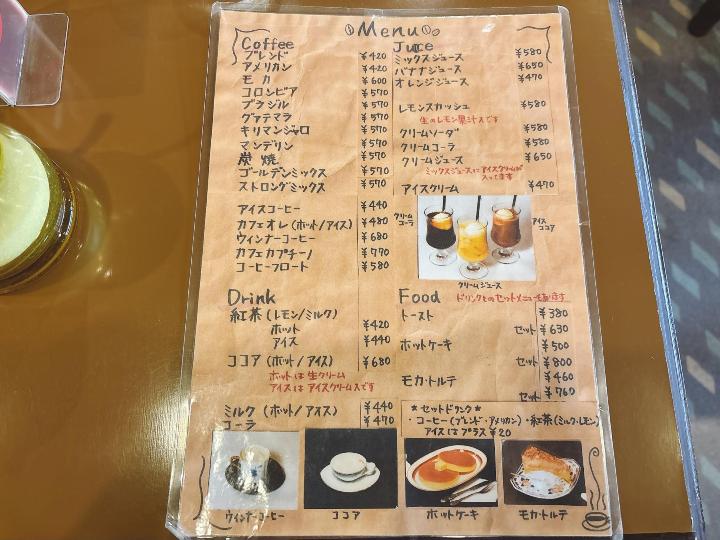 Menu
Coffee
ブレンド ¥420
アメリカン ¥420
モカ ¥600
コロンビア ¥570
ブラジル ¥570
グァテマラ ¥570
キリマンジャロ ¥570
マンデリン ¥570
炭焼 ¥570
ゴールデンミックス ¥570
ストロングミックス ¥570
アイスコーヒー ¥440
カフェオレ (ホット/アイス) ¥480
ウィンナーコーヒー ¥680
カフェカプチーノ ¥770
コーヒーフロート ¥580
Drink
紅茶 (レモン/ミルク)
ホット ¥420
アイス ¥440
ココア (ホット/アイス) ¥680
ホットは生クリーム
アイスはアイスクリームスです
ミルク (ホット/アイス) ¥440
コーラ ¥470
Juice
ミックスジュース ¥580
バナナジュース ¥650
オレンジジュース ¥470
レモンスカッシュ ¥580
生のレモン果汁入です
クリームソーダ ¥580
クリームコーラ ¥580
クリームジュース ¥650
ミックスジュースにアイスクリームが
入ってます
アイスクリーム ¥470
クリーム
コーラ
アイス
ココア
クリームジュース
Food ドリンクとのセットメニュー
トースト ¥380
セット ¥630
ホットケーキ ¥500
セット ¥800
モカ・トルテ ¥460
セット ¥760
* セットドリンク *
・コーヒー(ブレンド・アメリカン)・紅茶(ミルク・レモン)
アイスはプラス¥20
ウィンナーコーヒー
ココア
ホットケーキ
モカ・トルテ